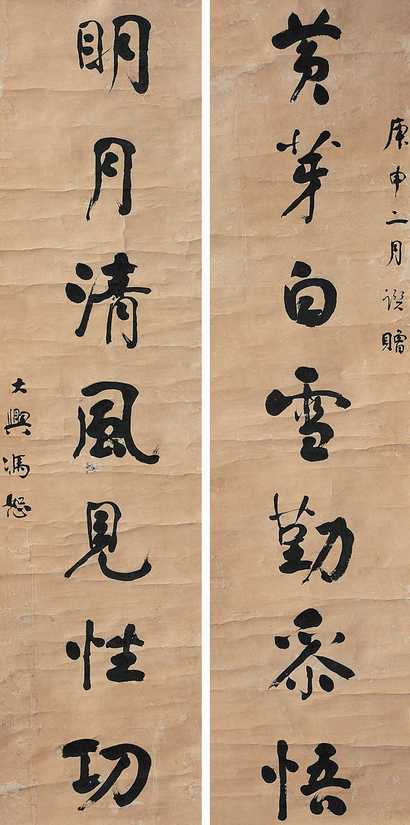 庚申二月譔贈
黄芽白雪勤叅悟
明月清風見性功
大興馮恕